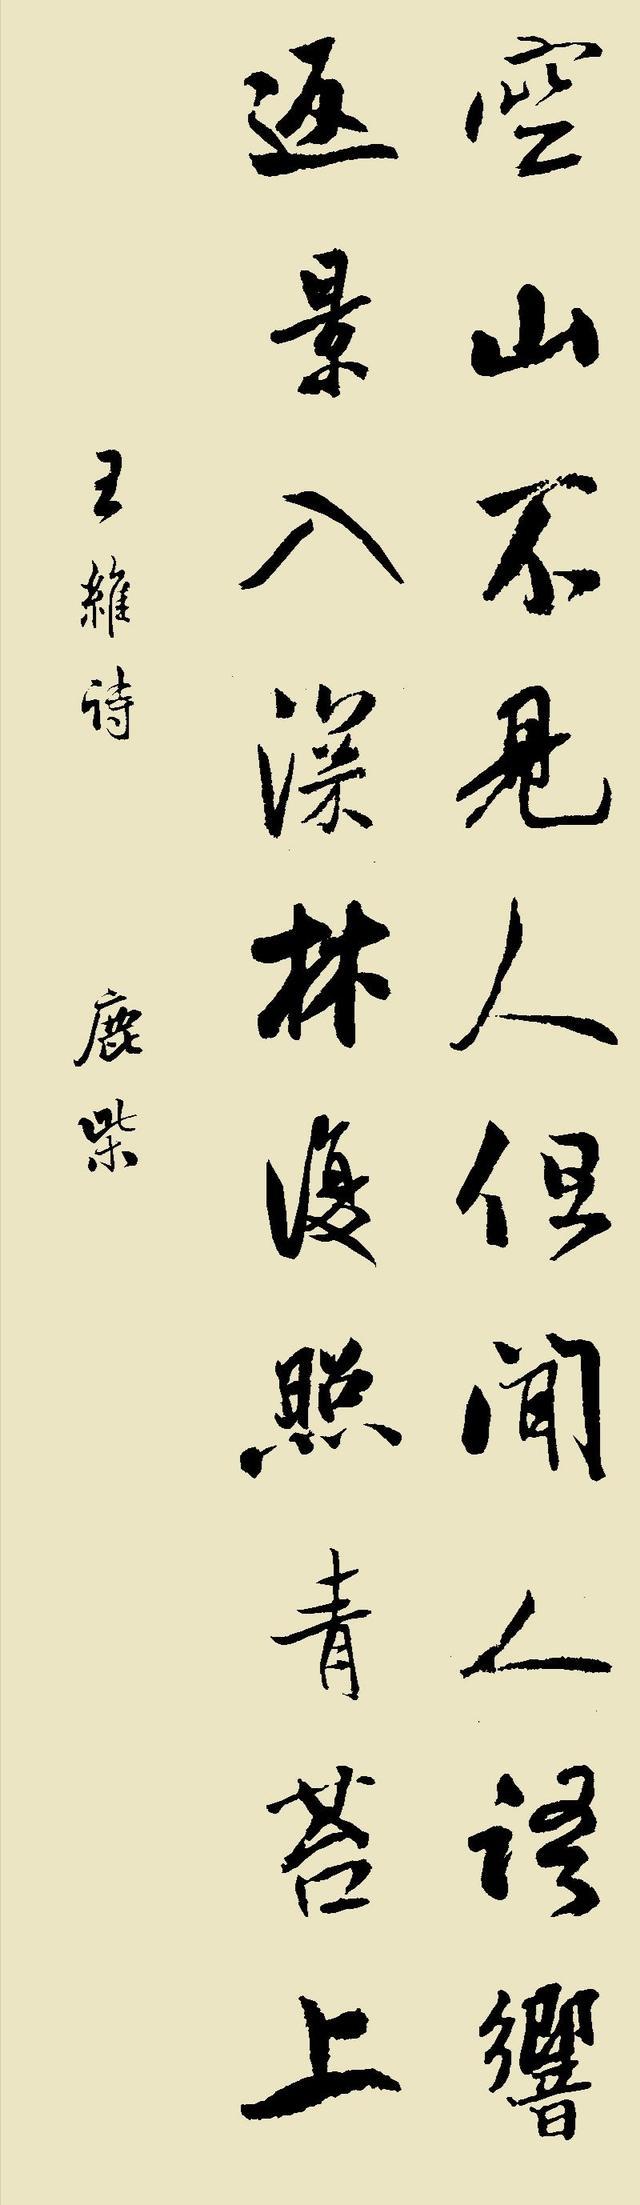 空山不見人但聞人語響
返景入深林復照青苔上
王維诗 鹿柴